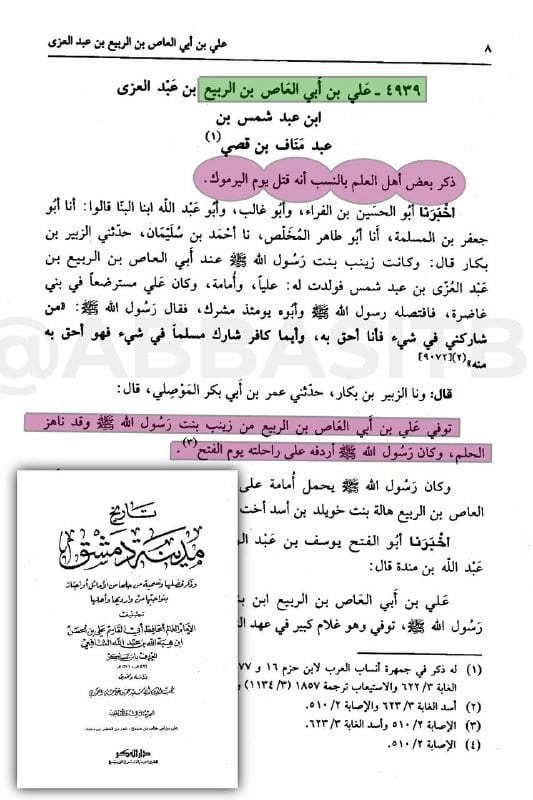 ٨
علي بن أبي العاص بن الربيع بن عبد العزى
٤٩٣٩ ـ عَلي بن أَبي العَاص بن الربيع بن عَبْد العزى
ابن عبد شمس بن
عبد مَنَاف بن قصي(١)
ذكر بعض أهل العلم بالنسب أنه قتل يوم اليرموك.
أَخْبَرَنا أبُو الحسَين بن الفراء، وأَبُو غالب، وأَبُو عَبْد الله ابنا البنّا قالوا: أنا أبُو
جعفر بن المسلمة، أَنا أبُو طاهر المُخَلّص، نا أحْمَد بن سُلَيْمَان، حَدّثني الزبير بن
بكار قال: وكانت زينب بنت رَسُول الله ﷺ عند أَبي العاص بن الربيع بن
عَبْد العُزّى بن عبد شمس فولدت له: علياً، وأُمامة، وكان عَلي مسترضعاً في بني
غاضرة، فافتصله رسول الله ﷺ وأَبُوه يومئذ مشرك، فقال رَسُول الله ﷺ: «من
شاركني في شيء فأنا أحق به، وأيما كافر شارك مسلماً في شيء فهو أحق به
منه»(٢)[٩٠٧٢]
قال: ونا الزبير بن بكار، حدّثني عمر بن أَبي بكر المَوْصلي، قال:
توفي عَلي بن أَبي العَاص بن الربيع من زينب بنت رَسُول الله ﷺ وقد ناهز
الحلم، وكان رَسُول الله ﷺ أردفه على راحلته يوم الفتح(٣).
وكان رَسُول الله ﷺ يحمل أُمامة على
العاص بن الربيع هالة بنت خويلد بن أسد أخت
أَخْبَرَنا أبُو الفتح يوسف بن عَبْد
عَبْد الله بن مندة قال:
عَلي بن أَبي العَاص بن الربيع ابن
رَسُول الله ﷺ، توفي وهو غلام كبير في عهد
(١) له ذكر في جمهرة أنساب العرب لابن حزم ١٦ و ٧٧
الغابة ٣/ ٦٢٢ والاستيعاب ترجمة ١٨٥٧ (٣/ ١١٣٤)
(٢) أسد الغابة ٣/ ٦٢٣ والإصابة ٢/ ٥١٠.
(٣) الإصابة ٢/ ٥١٠ وأسد الغابة ٣/ ٦٢٣.
(٤) الإصابة ٢/ ٥١٠.
تاريخ
مدينة دمشق
وذكر فضلها وتسمية من حلها من الأماثل أو اجتاز
بنواحيها من وارديها وأهلها
تصنيف
الإمام العالم الحافظ أبي القاسم علي بن الحسن
ابن هبة الله بن عبد الله الشافعي
المعروف بابن عساكر
دراسة وتحقيق
دار الفكر
@ABBASITB